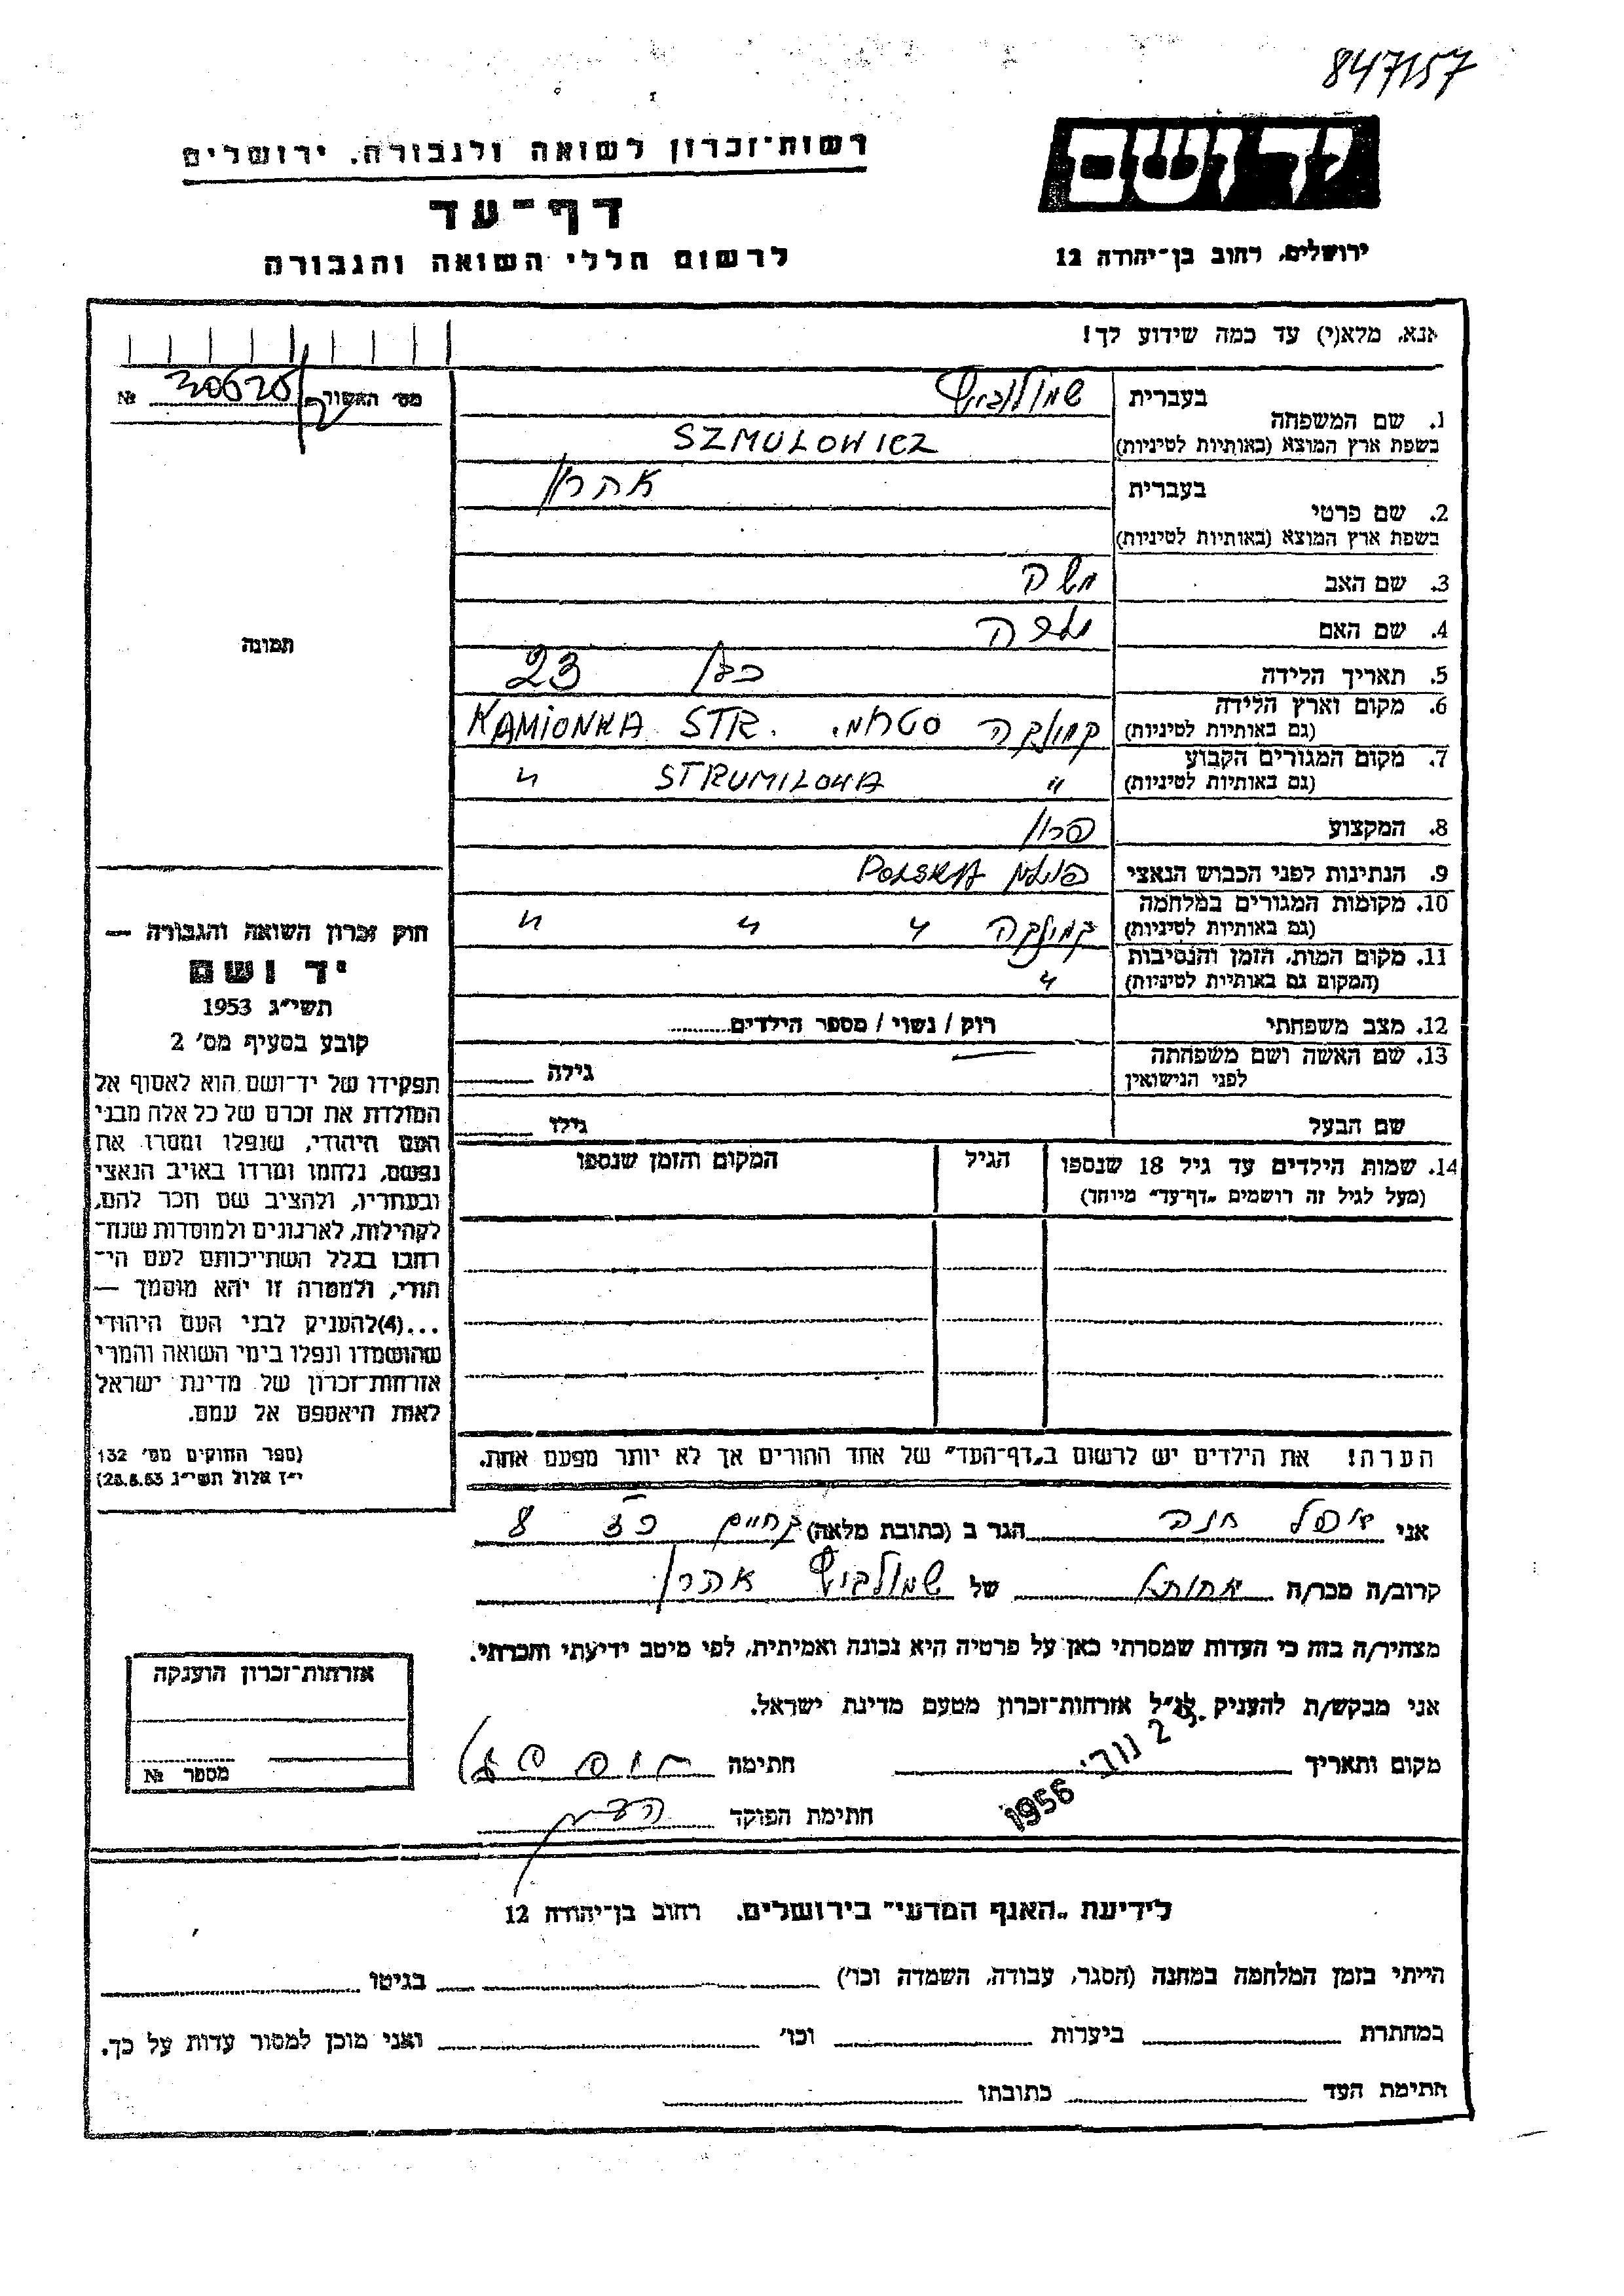 847157
יד ושם
ירושלים, רחוב בן־יהודה 12
רשות־זכרון לשואה ולגבורה, ירושלים
דף־עד
לרשום חללי השואה והגבורה
אנא, מלא(י) עד כמה שידוע לך!
מס׳ האשור №
1. שם המשפחה
בעברית שמולוביץ
בשפת ארץ המוצא (באותיות לטיניות) SZMULOWICZ
2. שם פרטי
בעברית אהרון
בשפת ארץ המוצא (באותיות לטיניות)
3. שם האב משה
4. שם האם
5. תאריך הלידה בן 23
6. מקום וארץ הלידה
(גם באותיות לטיניות) קמיונקה סטרומ. KAMIONKA STR.
7. מקום המגורים הקבוע
(גם באותיות לטיניות) " STRUMILOWA "
8. המקצוע
9. הנתינות לפני הכבוש הנאצי פולנית POLSKA
10. מקומות המגורים במלחמה
(גם באותיות לטיניות) קמיונקה " " "
11. מקום המות, הזמן והנסיבות
(המקום גם באותיות לטיניות) "
12. מצב משפחתי רוק / נשוי / מספר הילדים
13. שם האשה ושם משפחתה
לפני הנישואין גילה
שם הבעל גילו
14. שמות הילדים עד גיל 18 שנספו
(מעל לגיל זה רושמים „דף־עד״ מיוחד)
הגיל
המקום והזמן שנספו
הערה! את הילדים יש לרשום ב„דף־העד״ של אחד ההורים אך לא יותר מפעם אחת.
תמונה
חוק זכרון השואה והגבורה —
יד ושם
תשי״ג 1953
קובע בסעיף מס׳ 2
תפקידו של יד־ושם הוא לאסוף אל
המולדת את זכרם של כל אלה מבני
העם היהודי, שנפלו ומסרו את
נפשם, נלחמו ומרדו באויב הנאצי
ובעוזריו, ולהציב שם וזכר להם,
לקהילות, לארגונים ולמוסדות שנח־
רבו בגלל השתייכותם לעם הי־
הודי, ולמטרה זו יהא מוסמך —
...(4)להעניק לבני העם היהודי
שהושמדו ונפלו בימי השואה והמרי
אזרחות־זכרון של מדינת ישראל
לאות היאספם אל עמם.
(ספר החוקים מס׳ 132
י״ז אלול תשי״ג 28.8.53)
אני חנה הגר ב (כתובת מלאה) 8
קרוב/ה מכר/ה אחותו של שמולביץ אהרון
מצהיר/ה בזה כי העדות שמסרתי כאן על פרטיה היא נכונה ואמיתית, לפי מיטב ידיעתי והכרתי.
אני מבקש/ת להעניק לנ״ל אזרחות־זכרון מטעם מדינת ישראל.
מקום ותאריך 2 נוב׳ 1956 חתימה
חתימת הפוקד
אזרחות־זכרון הוענקה
מספר №
לידיעת „האגף המדעי״ בירושלים, רחוב בן־יהודה 12
הייתי בזמן המלחמה במחנה (הסגר, עבודה, השמדה וכו׳) בגיטו
במחתרת ביערות וכו׳ ואני מוכן למסור עדות על כך.
חתימת העד כתובתו